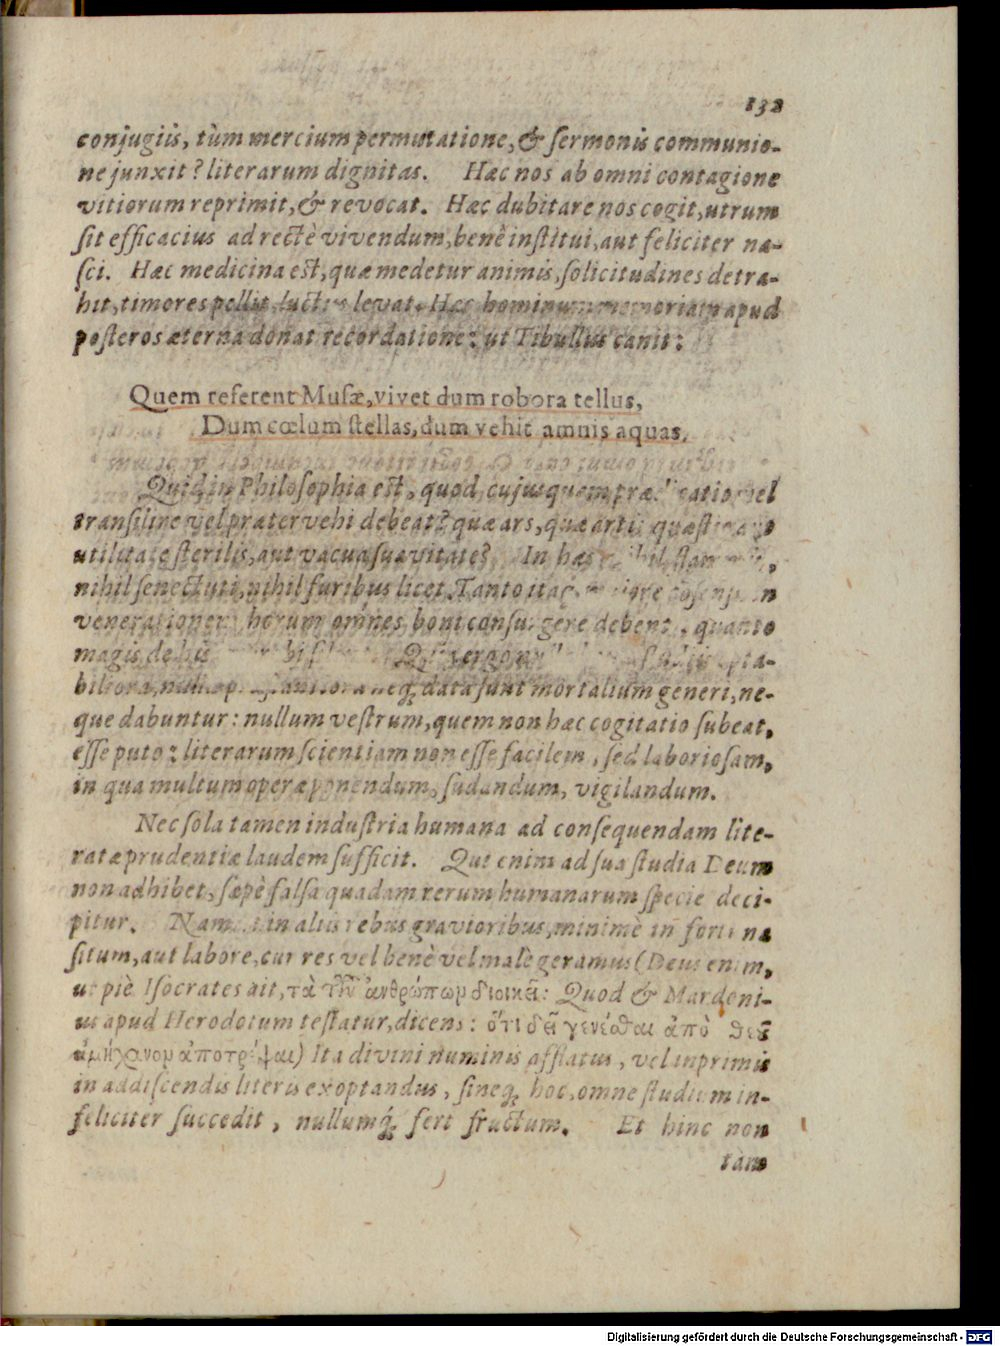 132
conjugiis, tùm mercium permutatione, & sermonis communio-
ne junxit? literarum dignitas. Hæc nos ab omni contagione
vitiorum reprimit, & revocat. Hæc dubitare nos cogit, utrum
sit efficacius ad rectè vivendum, benè institui, aut feliciter na-
sci. Hæc medicina est, quæ medetur animis, solicitudines detra-
hit, timores pellit, luctus levat. Hæc hominum memoriam apud
posteros æterna donat recordatione: ut Tibullus canit:
Quem referent Musæ, vivet dum robora tellus,
Dum cœlum stellas, dum vehit amnis aquas.
Quid in Philosophia est, quod cujusquem prædicatio vel
transilire vel præter vehi debeat? quæ ars, quæ artis quæstio
utilitate sterilis, aut vacua suavitate? In hæc nihil
nihil senectuti, nihil furibus licet. Tanto itaq́;
venerationem horum omnes boni consurgere debent, quanto
magis ergo opta-
biliora, neq́; data sunt mortalium generi, ne-
que dabuntur: nullum vestrum, quem non hæc cogitatio subeat,
esse puto: literarum scientiam non esse facilem, sed laboriosam,
in qua multum operæ ponendum, sudandum, vigilandum.
Nec sola tamen industria humana ad consequendam lite-
ratæ prudentiæ laudem sufficit. Qui enim ad sua studia Deum
non adhibet, sæpè falsa quadam rerum humanarum specie deci-
pitur. Nam in aliis rebus gravioribus, minimè in fortuna
situm, aut labore, cur res vel benè vel malè geramus (Deus enim,
ut piè Isocrates ait, τὰ τῶν ἀνθρώπων διοικεῖ: Quod & Mardoni-
us apud Herodotum testatur, dicens: ὅτι δεῖ γενέσθαι ἀπὸ θεοῦ
ἀμήχανον ἀποτρέψαι) Ita divini numinis afflatus, vel inprimis
in addiscendis literis exoptandus, sineq́; hoc, omne studium in-
feliciter succedit, nullumq́; fert fructum. Et hinc non
tàm
Digitalisierung gefördert durch die Deutsche Forschungsgemeinschaft - DFG